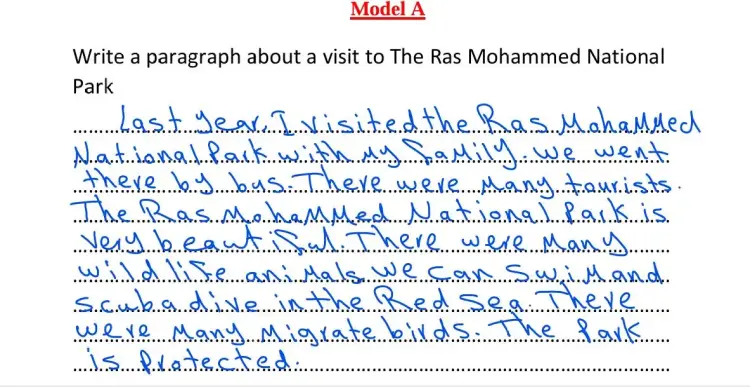 Model A
Write a paragraph about a visit to The Ras Mohammed National
Park
Last year, I visited the Ras Mohammed
National Park with my family. we went
there by bus. There were many tourists.
The Ras Mohammed National Park is
very beautiful. There were many
wild life animals. we can swim and
scuba dive in the Red Sea. There
were many migrate birds. The Park
is protected.